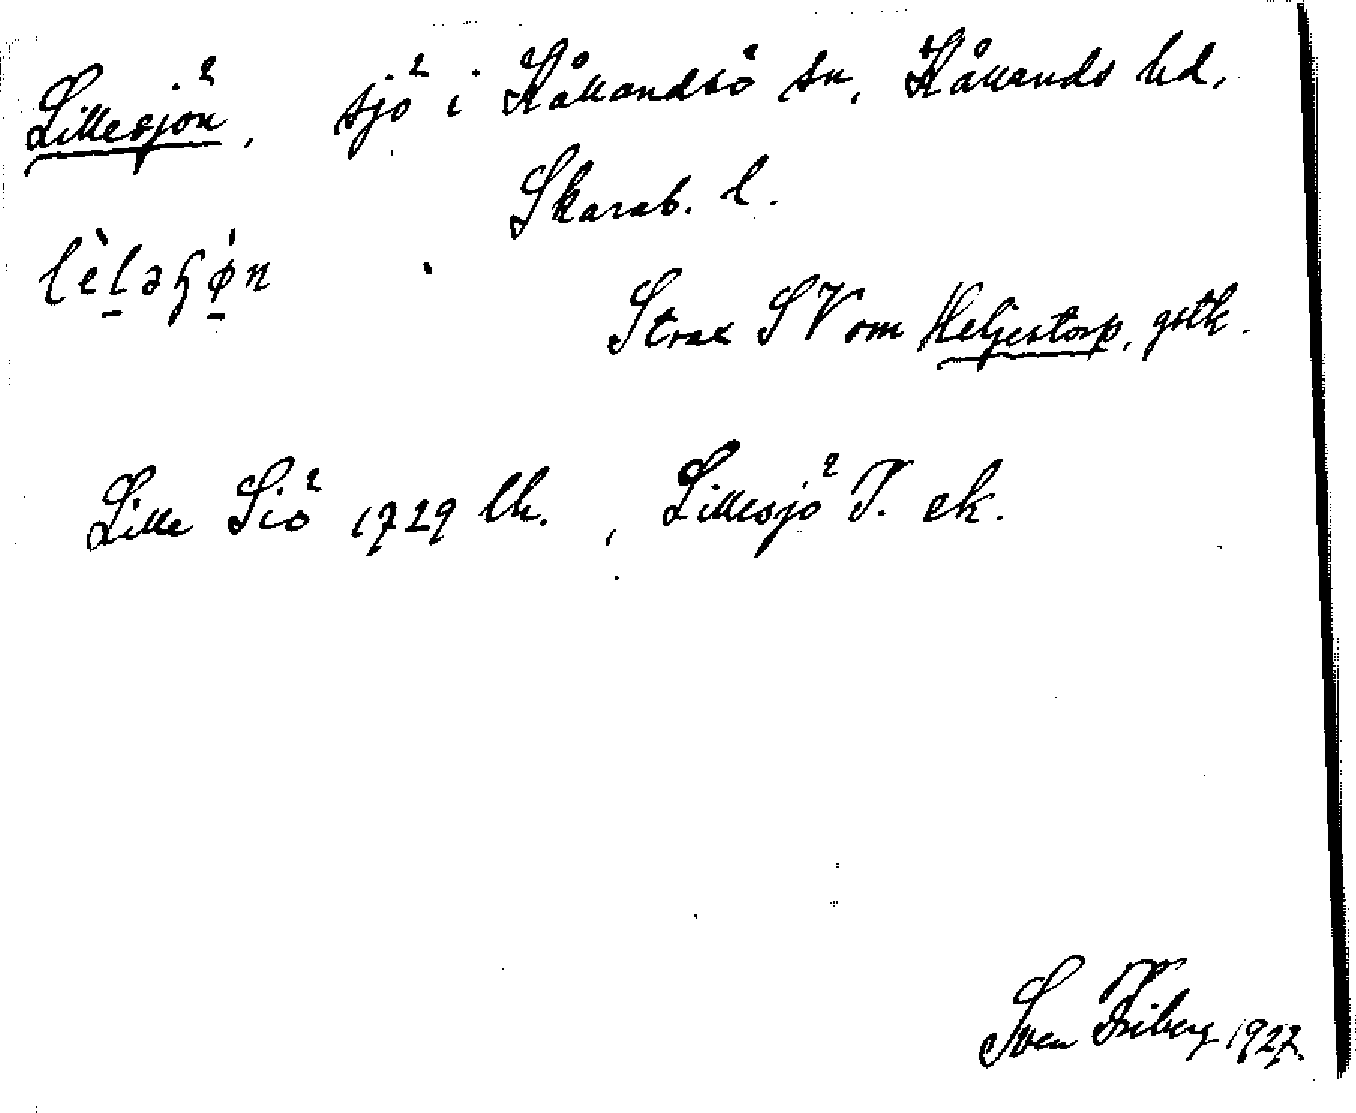 Lillesjön, sjö i Kållandsö sn, Kållands hd,
Skarab. l.
lèləɧø̀n
Strax SV om Heljestorp, gstk.
Lille Siö 1729 lk., Lillesjö T. ek.
Sven Friberg 1927